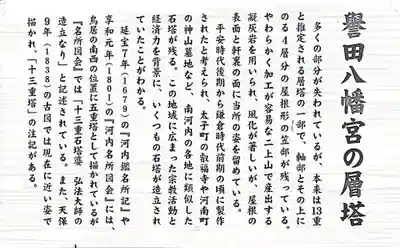 譽田八幡宮の層塔
多くの部分が失われているが、本来は13重
と推定される層塔の一部で、軸部とその上に
のる4層分の屋根形の笠部が残っている。
やわらかく加工が容易な二上山で産出する
凝灰岩を用いられ、風化が著しいが、屋根の
表面と軒裏の面に当所の姿を留めている。
平安時代後期から鎌倉時代前期の頃に製作
されたと考えられ、太子町の叡福寺や河南町
の神山墓地など、南河内の各地に類似した
石塔が残る。この地域に広まった宗教活動と
経済力を背景に、いくつもの石塔が造立され
ていたことがわかる。
延宝7年(1679)の『河内鑑名所記』や
享和元年(1801)の『河内名所図会』には、
鳥居の南西の位置に五重塔として描かれているが
『名所図会』では「十三重石塔婆 弘法大師の
造立なり」と記述されている。また、天保
9年(1838)の古図では現在に近い姿で
描かれ、「十三重塔」の注記がある。